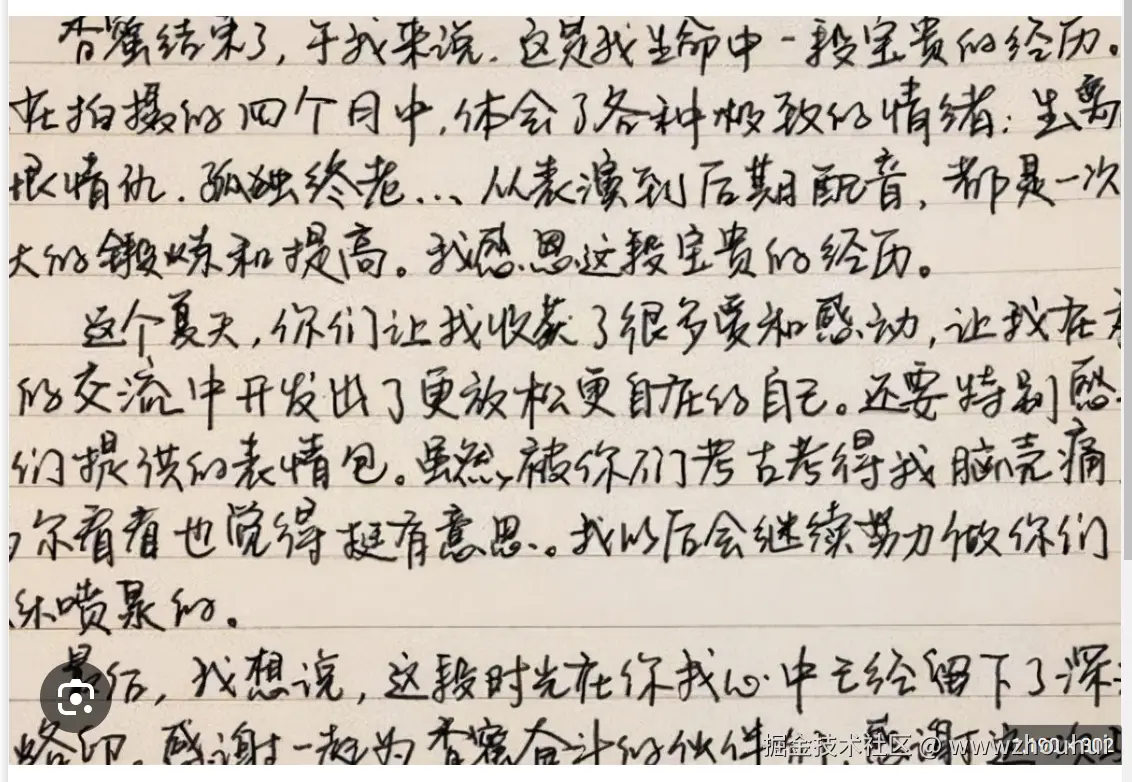 香蜜结束了,于我来说.这是我生命中一段宝贵的经历。
在拍摄的四个月中,体会了各种极致的情绪:生离
恨情仇.孤独终老...从表演到后期配音,都是一次
大的锻炼和提高。我感恩这段宝贵的经历。
这个夏天,你们让我收获了很多爱和感动,让我在
的交流中开发出了更放松更自在的自己。还要特别感
们提供的表情包。虽然,被你们考古考得我脑壳痛
尔看看也觉得挺有意思。我以后会继续努力做你们
喷泉的。
最后,我想说,这段时光在你我心中已经留下了深
烙印.感谢一起为香蜜奋斗的伙伴们.感谢
掘金技术社区 @ wwwzhouhui